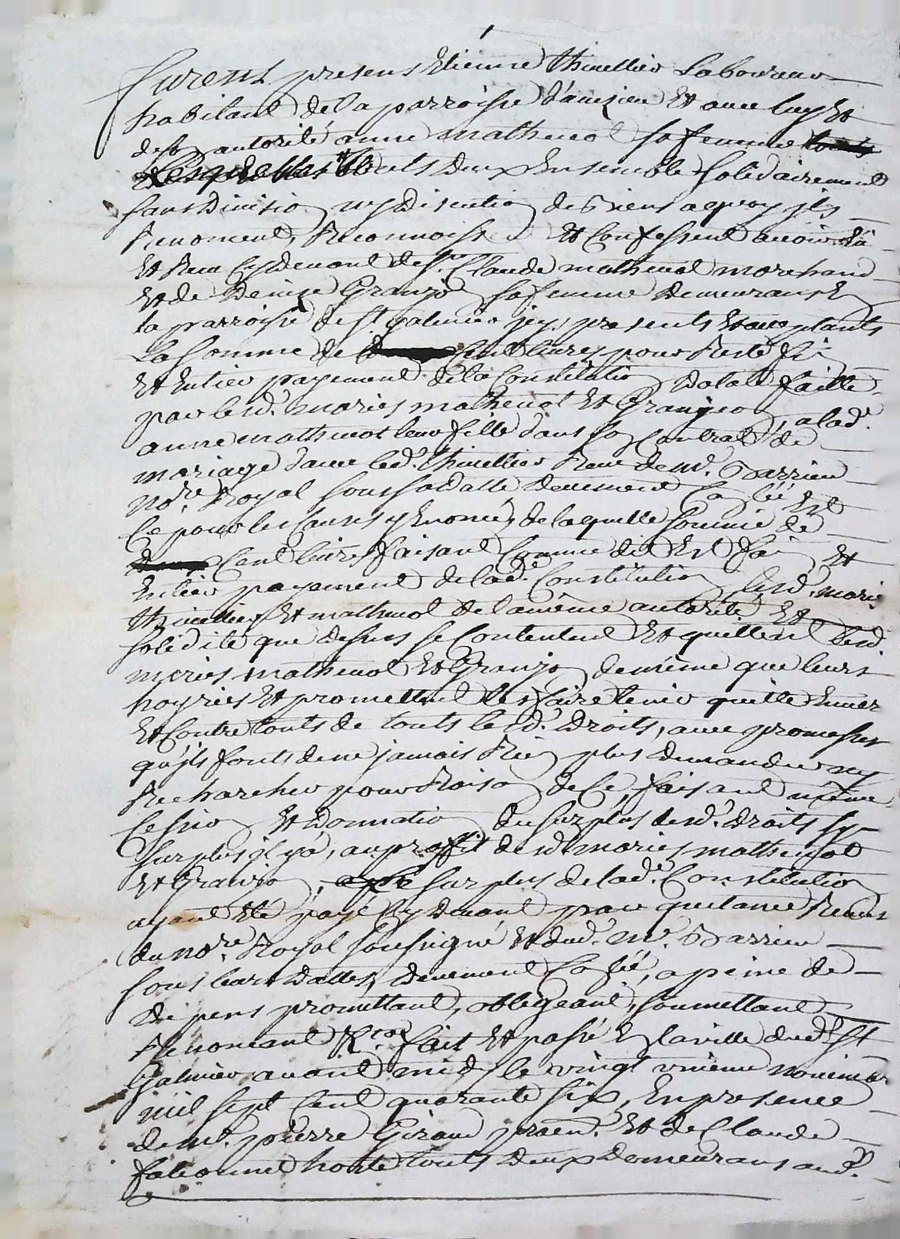 furent presens Etienne thinellier Laboureur
habitant de la parroisse d'aveizieu Et avec luy Et
de so autorité anne mathevot sa femme
Lesquels touts deux Ensemble solidairement
sans Division ny discution de biens a quoy jls
Renoncent, Reconnoissent Et Confessent avoir
Et Reçu Cydevant de Sr. Claude mathevot marchand
Et de Denise Granjo sa femme demeurans En
la parroisse de St. galmier jcy presents Et acceptants
La somme de Cent livres pour Reste
Et Entier payement de la Constitution Dotale faitte
par lesd. mariés mathevot Et Granjeo, a lad.
anne mathevot leur fille dans so Contrat de
mariage d'avec led. thinellier Reçu de Mr. Darrieu
no.re Royal sous sa datte deuement Et
Ce pour les Causes y Enoncés, de laquelle somme de
Cent livres faisant Comme dit Est fin Et
Entier payement de lad. Constitution lesd. mariés
thinellier Et mathevot de la même autorité Et
solidité que dessus se Contentent Et quittent lesd.
mariés mathevot Et Granjo, de même que leurs
hoyries Et promettent les faire tenir quitte Envers
Et Contre touts de touts lesd. droits, avec promesses
qu'ils fonts de ne jamais Rien plus demander ny
Rechercher pour Raison de Ce faisant même
Cession Et Donnation du surplus desd. droits sy
surplus y a, au profit desd. mariés mathevot
Et Granjo, surplus de lad. Constitution
ayant Eté payé Cy devant par quitance Reçus
du no.re Royal soussigné Et dud. Mr. Darrieu
sous leurs Dattes, deuement, a peine de
Dépens promettant, obligeant, soumettant,
Renoncant &.a fait Et passé En la ville dud. St
Galmier avant midy le vingt novembre
mil sept Cent quarante six, En presence
de Mr. pierre Giraud praen. Et de Claude
hoste touts deux demeurans aud.